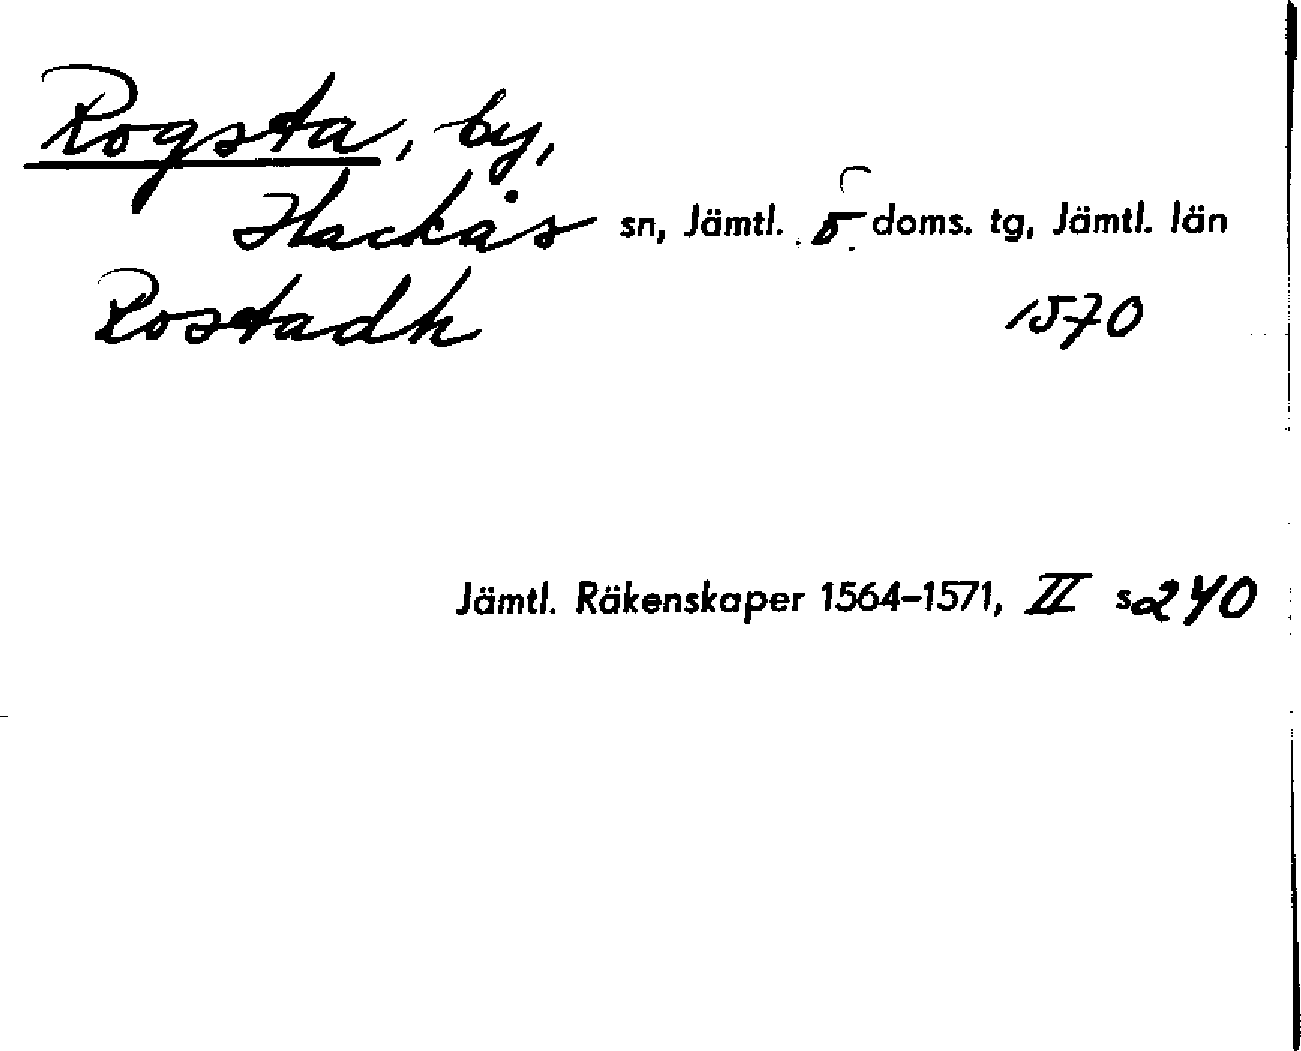 Rogsta, by,
Hackås sn, Jämtl. ö doms. tg, Jämtl. län
Rostadh 1570
Jämtl. Räkenskaper 1564–1571, II s 240